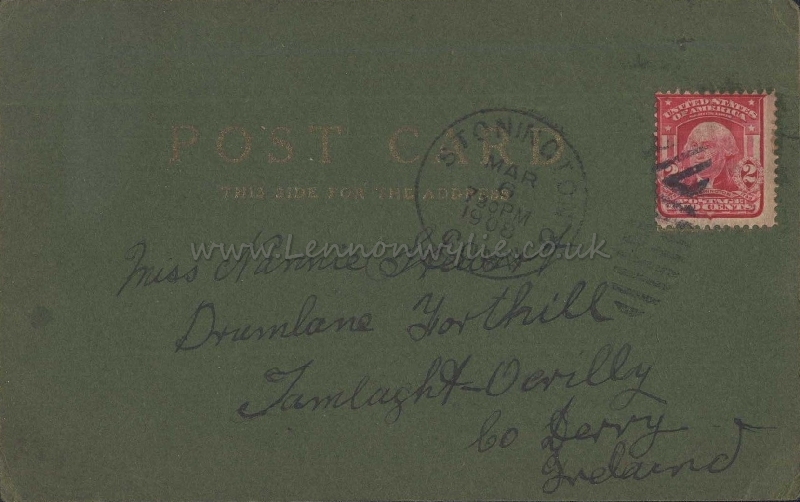 UNITED STATES
OF AMERICA
POST CARD
STONINGTON
MAR
PM
THIS SIDE FOR THE ADDRESS
2 2
POSTAGE
TWO CENTS
www.Lennonwylie.co.uk
Miss Nannie Stewart
Drumlane Forthill
Tamlaght-Ocrilly
Co Derry
Ireland